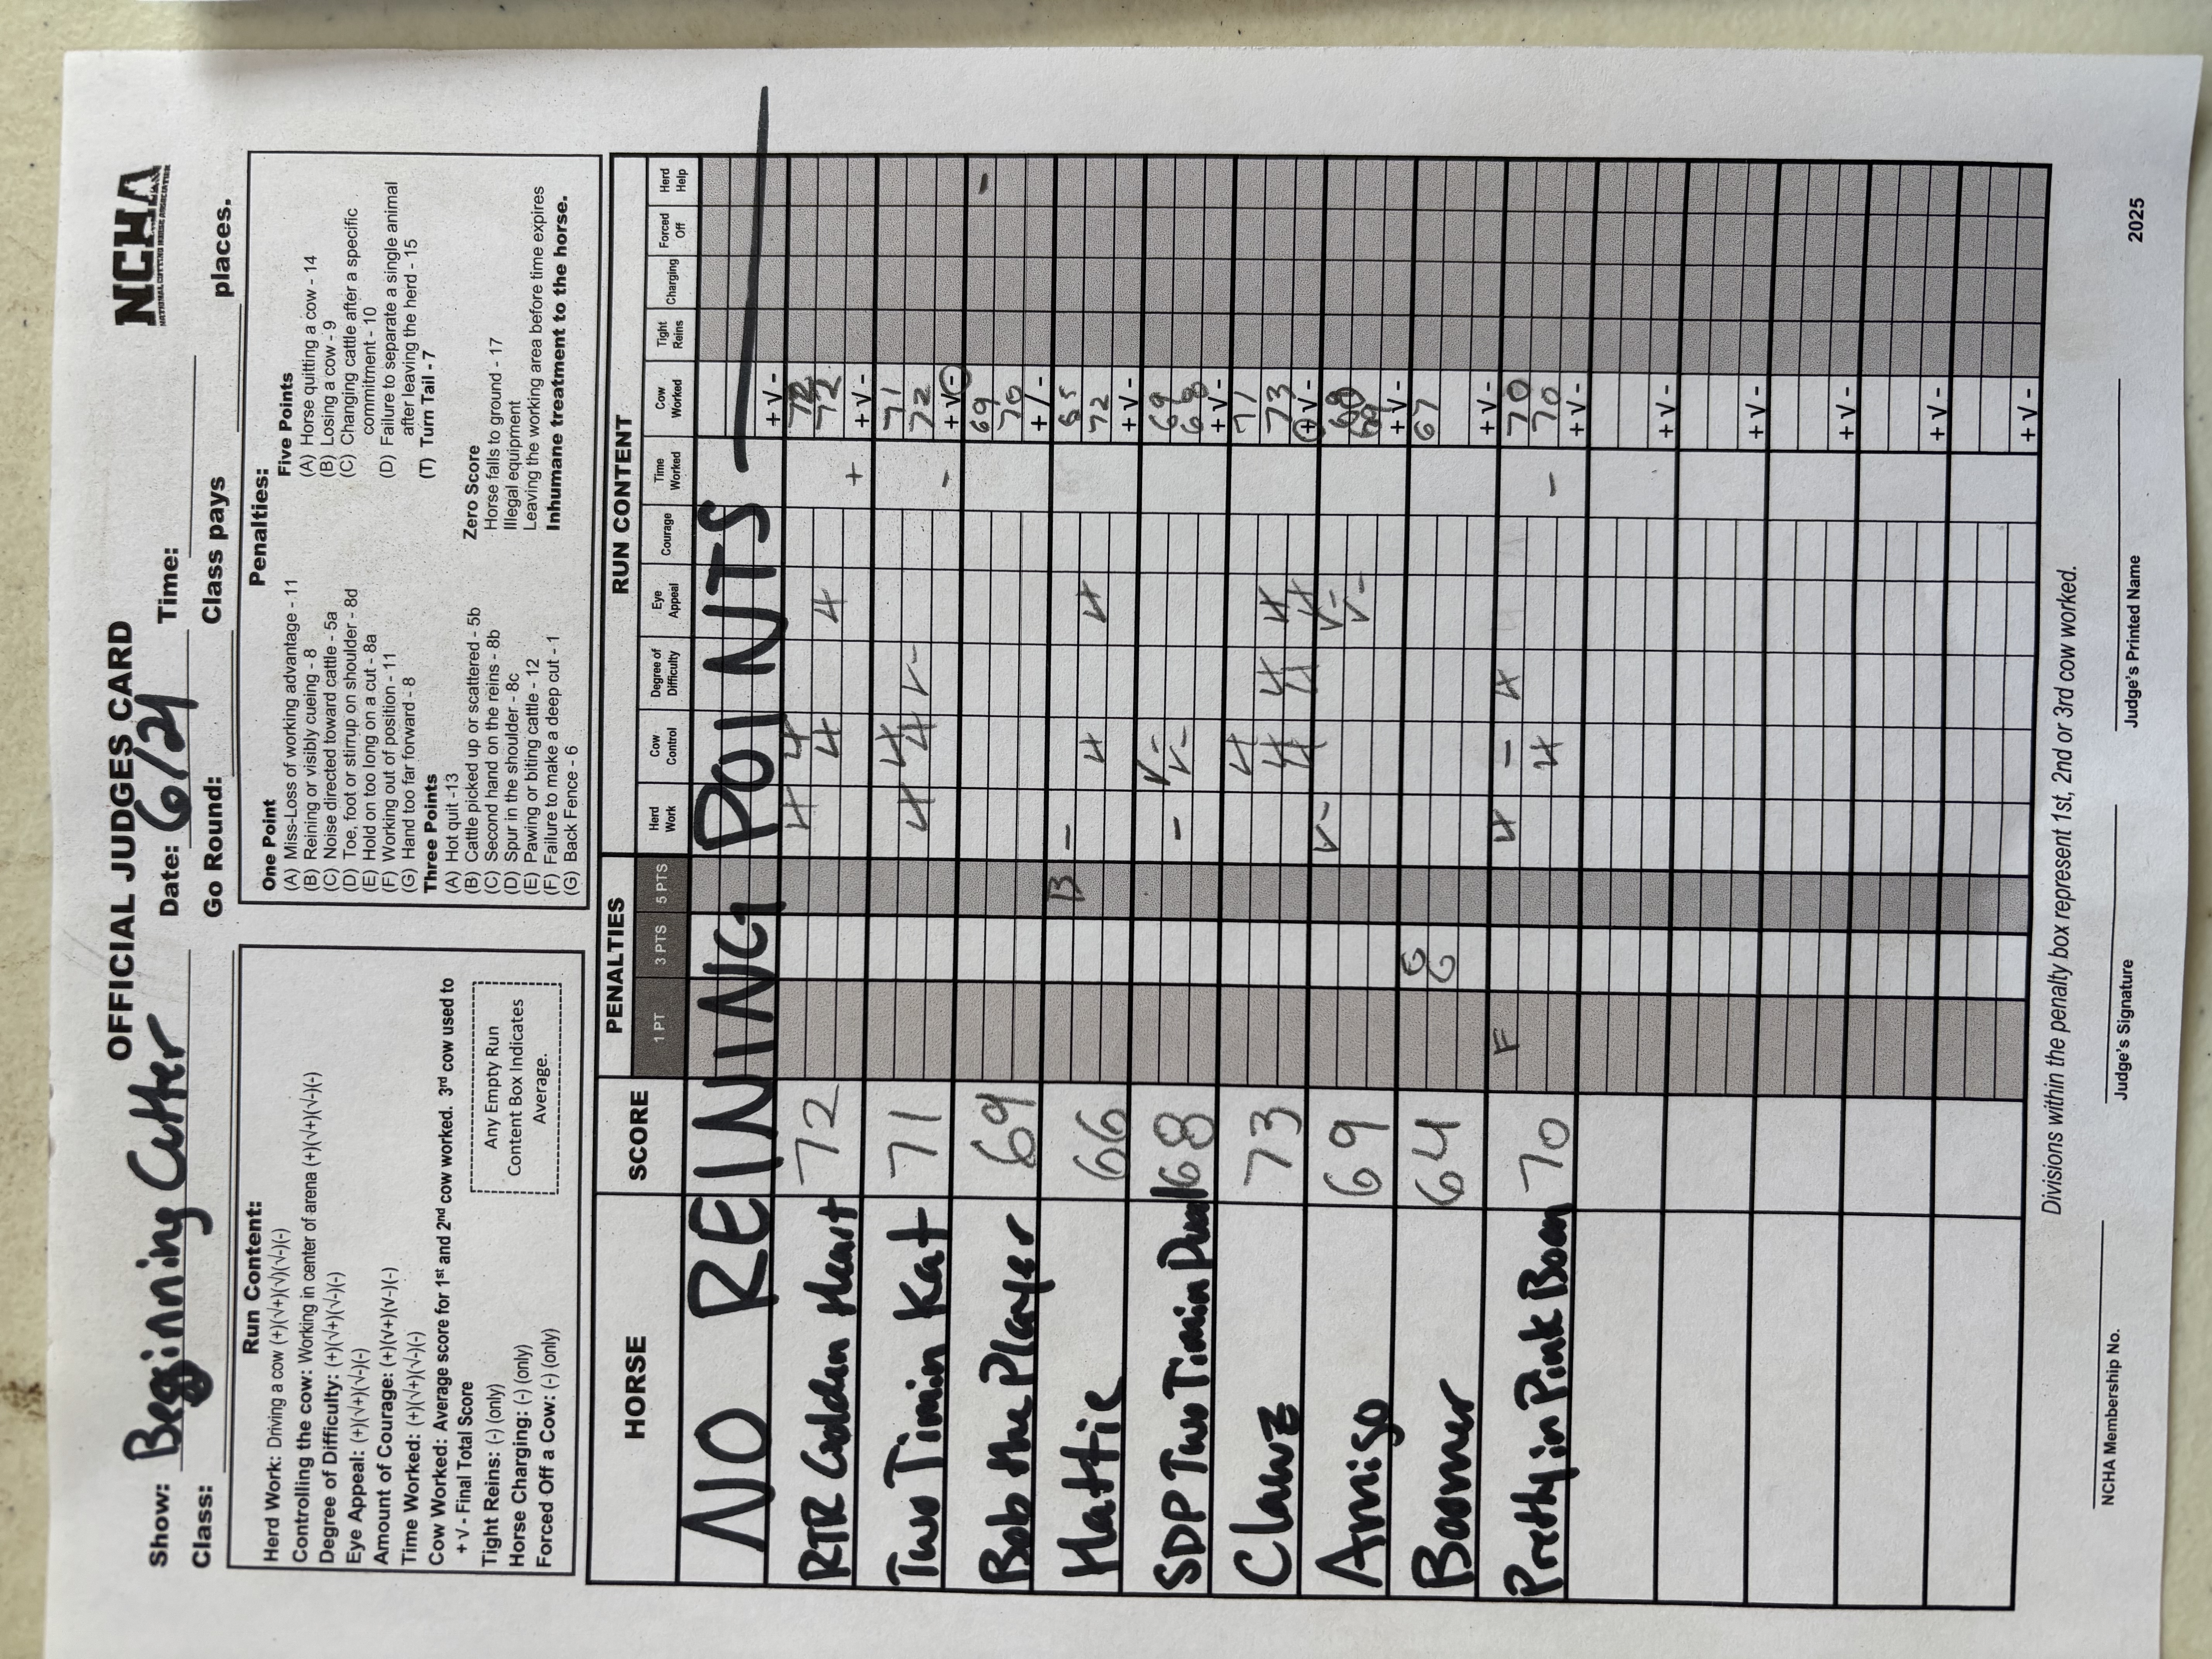 OFFICIAL JUDGES CARD
NCHA
NATIONAL CUTTING HORSE ASSOCIATION
Show: Beginning Cutter Date: 6/21 Time:
Class: Go Round: Class pays places.
Run Content:
Herd Work: Driving a cow (+)(√+)(√)(√-)(-)
Controlling the cow: Working in center of arena (+)(√+)(√-)(-)
Degree of Difficulty: (+)(√+)(√-)(-)
Eye Appeal: (+)(√+)(√-)(-)
Amount of Courage: (+)(√+)(√-)(-)
Time Worked: (+)(√+)(√-)(-)
Cow Worked: Average score for 1st and 2nd cow worked. 3rd cow used to
+ √ - Final Total Score
Tight Reins: (-) (only)
Horse Charging: (-) (only)
Forced Off a Cow: (-) (only)
Any Empty Run
Content Box Indicates
Average.
Penalties:
One Point
(A) Miss-Loss of working advantage - 11
(B) Reining or visibly cueing - 8
(C) Noise directed toward cattle - 5a
(D) Toe, foot or stirrup on shoulder - 8d
(E) Hold on too long on a cut - 8a
(F) Working out of position - 11
(G) Hand too far forward - 8
Three Points
(A) Hot quit -13
(B) Cattle picked up or scattered - 5b
(C) Second hand on the reins - 8b
(D) Spur in the shoulder - 8c
(E) Pawing or biting cattle - 12
(F) Failure to make a deep cut - 1
(G) Back Fence - 6
Five Points
(A) Horse quitting a cow - 14
(B) Losing a cow - 9
(C) Changing cattle after a specific
commitment - 10
(D) Failure to separate a single animal
after leaving the herd - 15
(T) Turn Tail - 7
Zero Score
Horse falls to ground - 17
Illegal equipment
Leaving the working area before time expires
Inhumane treatment to the horse.
HORSE SCORE PENALTIES RUN CONTENT
1 PT 3 PTS 5 PTS Herd Work Cow Control Degree of Difficulty Eye Appeal Courage Time Worked Cow Worked Tight Reins Charging Forced Off Herd Help
NO REINING POINTS + √ -
RTR Golden Heart 72 + 72 + √ -
Two Timin Kat 71 √- - 71 72 + √ -
Bob the Player 69 69 70 + / - -
Hattie 66 B - 65 72 + √ -
SDP Two Timin Dual 68 - √- √- 69 68 + √ -
Clawz 73 71 73 + √ -
Amigo 69 √- √- √- 69 + √ -
Boomer 64 G G 67 + √ -
Pretty in Pink Boon 70 F - - 70 70 + √ -
+ √ -
+ √ -
+ √ -
+ √ -
+ √ -
Divisions within the penalty box represent 1st, 2nd or 3rd cow worked.
NCHA Membership No. Judge's Signature Judge's Printed Name 2025